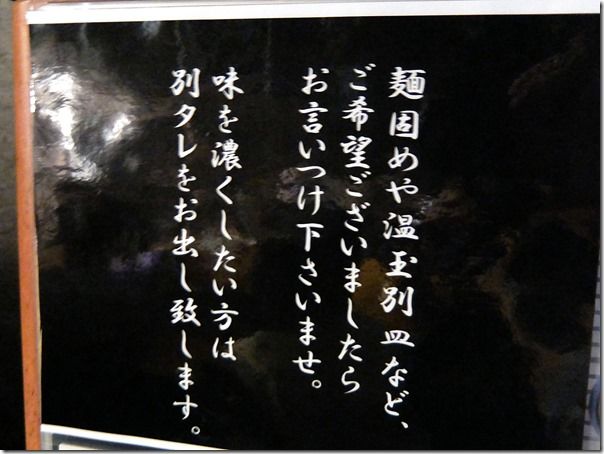 麺固めや温玉別皿など、
ご希望ございましたら
お言いつけ下さいませ。
味を濃くしたい方は
別タレをお出し致します。